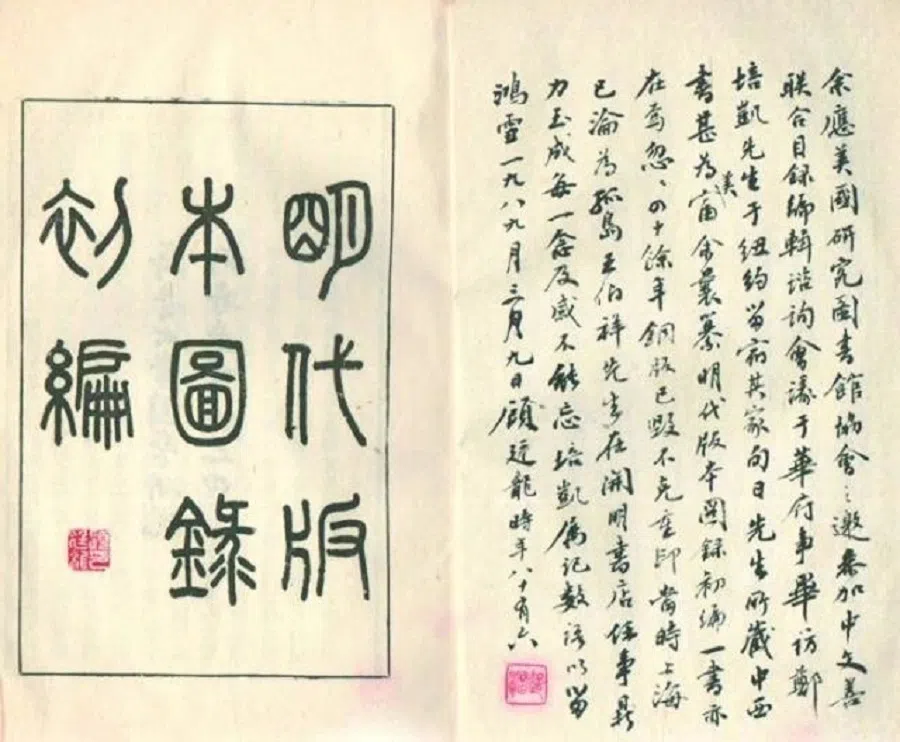 余應美國研究圖書館協會之邀參加中文善
聯合目錄編輯諮詢會議于華府事畢訪鄭
培凱先生于紐約留宿其家旬日先生所藏中西
書甚為美富余曩纂明代版本圖錄初編一書亦
在焉忽、四十餘年銅版已毀不克重印當時上海
已淪為孤島王伯祥先生在開明書店任事鼎
力玉成每一念及感不能忘培凱屬記數語以留
鴻雪一九八九月三月九日顧廷龍時年八十有六
明代版
本圖錄
初編